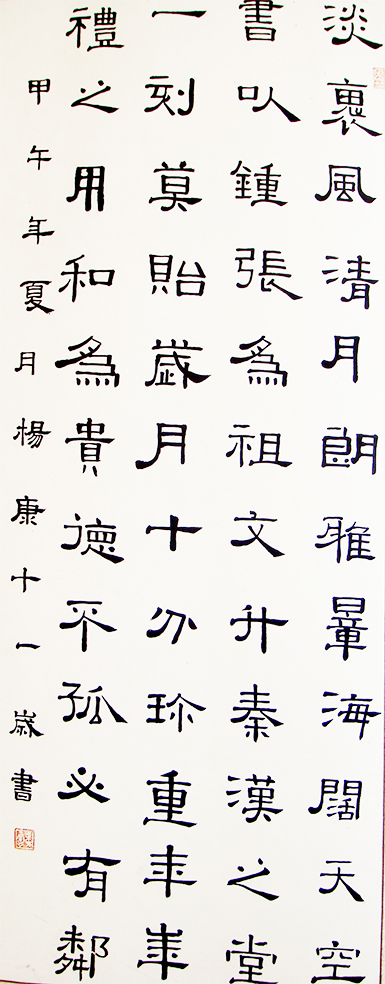 淡褱風清月朗雅量海闊天空
書以鍾張爲祖文升秦漢之堂
一刻莫貽歲月十分珍重年華
禮之用和爲貴德不孤必有鄰
甲午年夏月楊康十一歲書